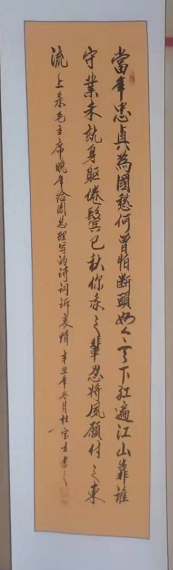 當年忠貞為國愁何曾怕斷頭如今天下紅遍江山靠誰
守業未就身軀倦鬢已秋你我之輩忍將夙願付之東
流上录毛主席晚年给周总理写的诗词诉衷情辛丑年冬月杜宝书